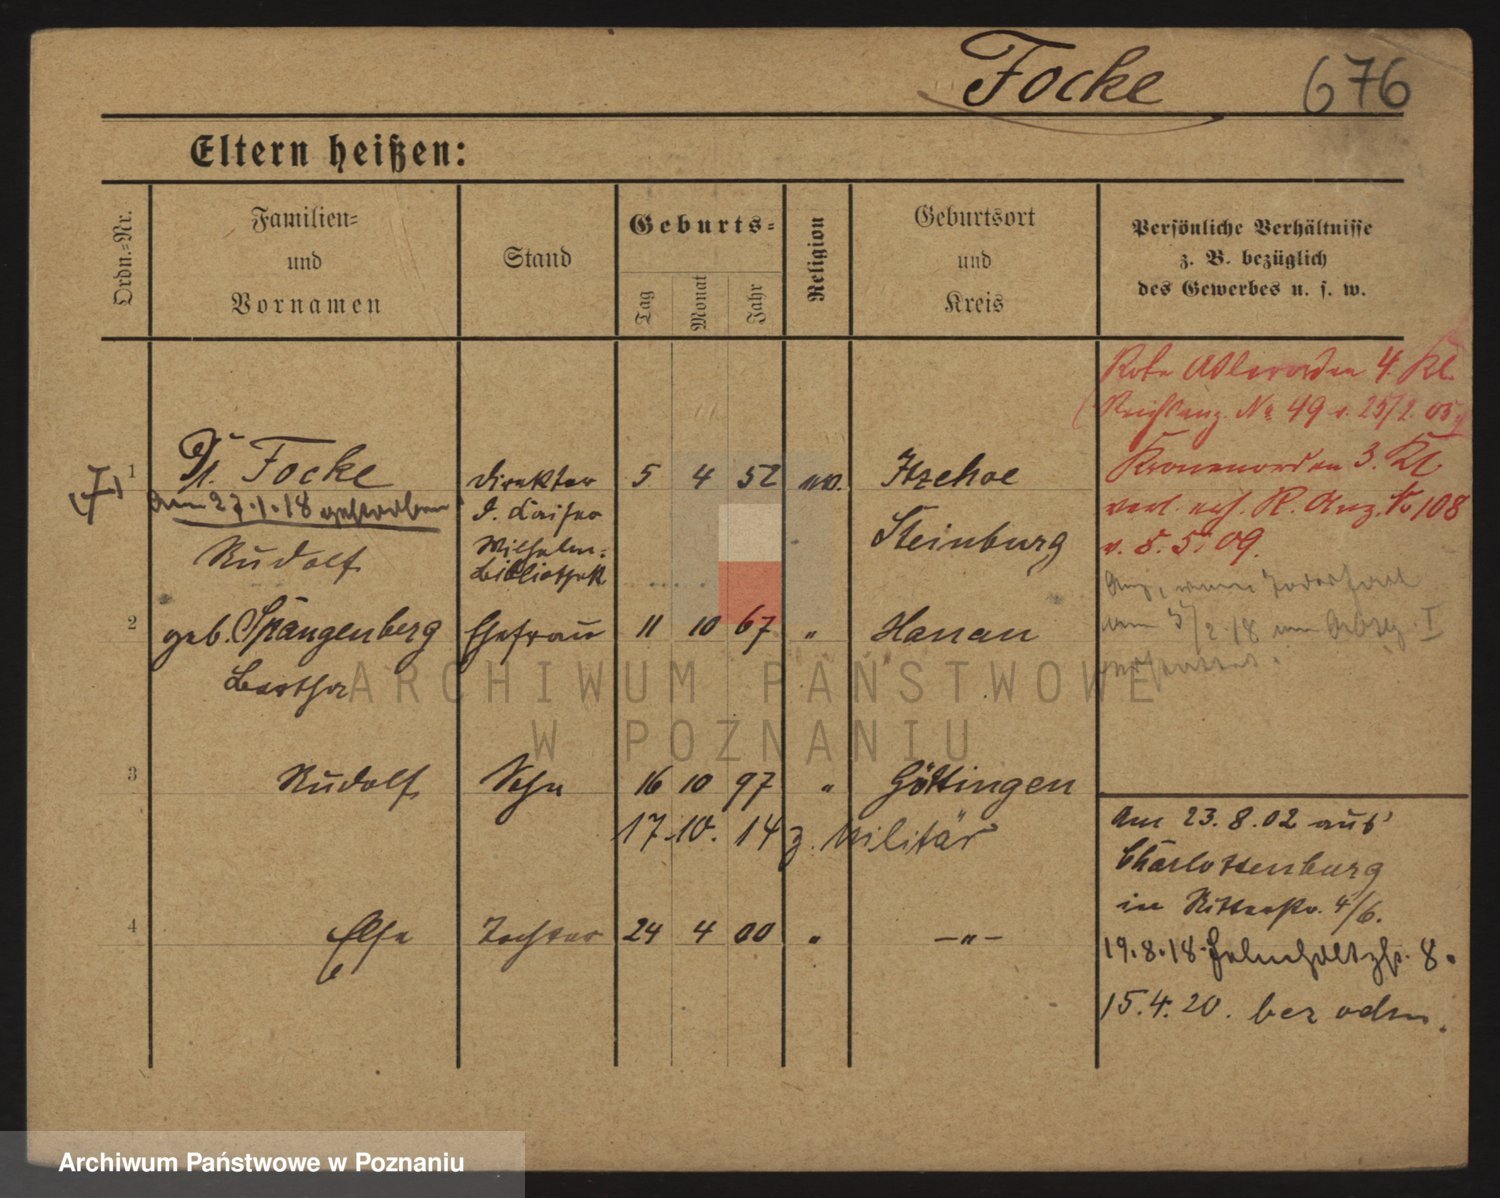 Focke 676
Eltern heißen:
Ordn.=Nr.
Familien=
und
Vornamen
Stand
Geburts=
Tag
Monat
Jahr
Religion
Geburtsort
und
Kreis
Persönliche Verhältnisse
z. B. bezüglich
des Gewerbes u. s. w.
Rote Adlerorden 4. Kl.
(Reichsanz. No 49 v. 25/2. 05.)
Kronenorden 3. Kl.
verl. R. Anz. No 108
v. 8. 5. 09.
1 Dr. Focke Direktor 5 4 52 ev. Itzehoe
am 27.1.18 gestorben
d. Kaiser
Rudolf Wilhelm= Steinburg
Bibliothek
2 geb. Spangenberg Ehefrau 11 10 67 " Hanau
Bertha
3 Rudolf Sohn 16 10 97 " Göttingen
17.10. 14 z. Militär
4 Else Tochter 24 4 00 " —"—
Am 23.8.02 aus
Charlottenburg
in Ritterstr. 4/6.
19.8.18 Helmholtzstr. 8.
15.4.20. bez odm.
ARCHIWUM PAŃSTWOWE
W POZNANIU
Archiwum Państwowe w Poznaniu